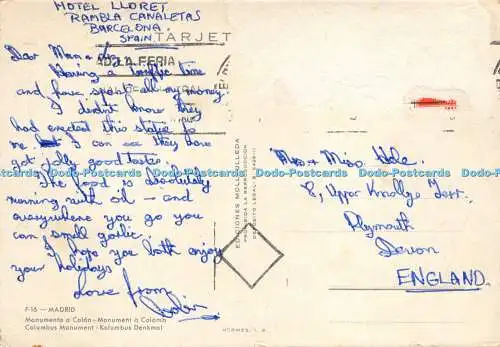 HOTEL LLORET
RAMBLA CANALETAS
BARCELONA.
SPAIN.
TARJET
Having a terrific time
and have spent all my money.
I didn't know they
had erected this statue to
me but I can see they have
got jolly good taste.
The food is absolutely
running with oil — and
everywhere you go you
can smell garlic.
I hope you both enjoy
your holidays
Love from
Mrs + Miss Hole.
8, Upper Knollys Terr.,
Plymouth
Devon
ENGLAND.
EDICIONES MOLINO-LLEDA
PROHIBIDA LA REPRODUCCION
DEPOSITO LEGAL
F-16 — MADRID
Monumento a Colón - Monument à Colomb
Columbus Monument - Kolumbus Denkmal
Dodo-Postcards Dodo-Postcards Dodo-Postcards Dodo-Postcards